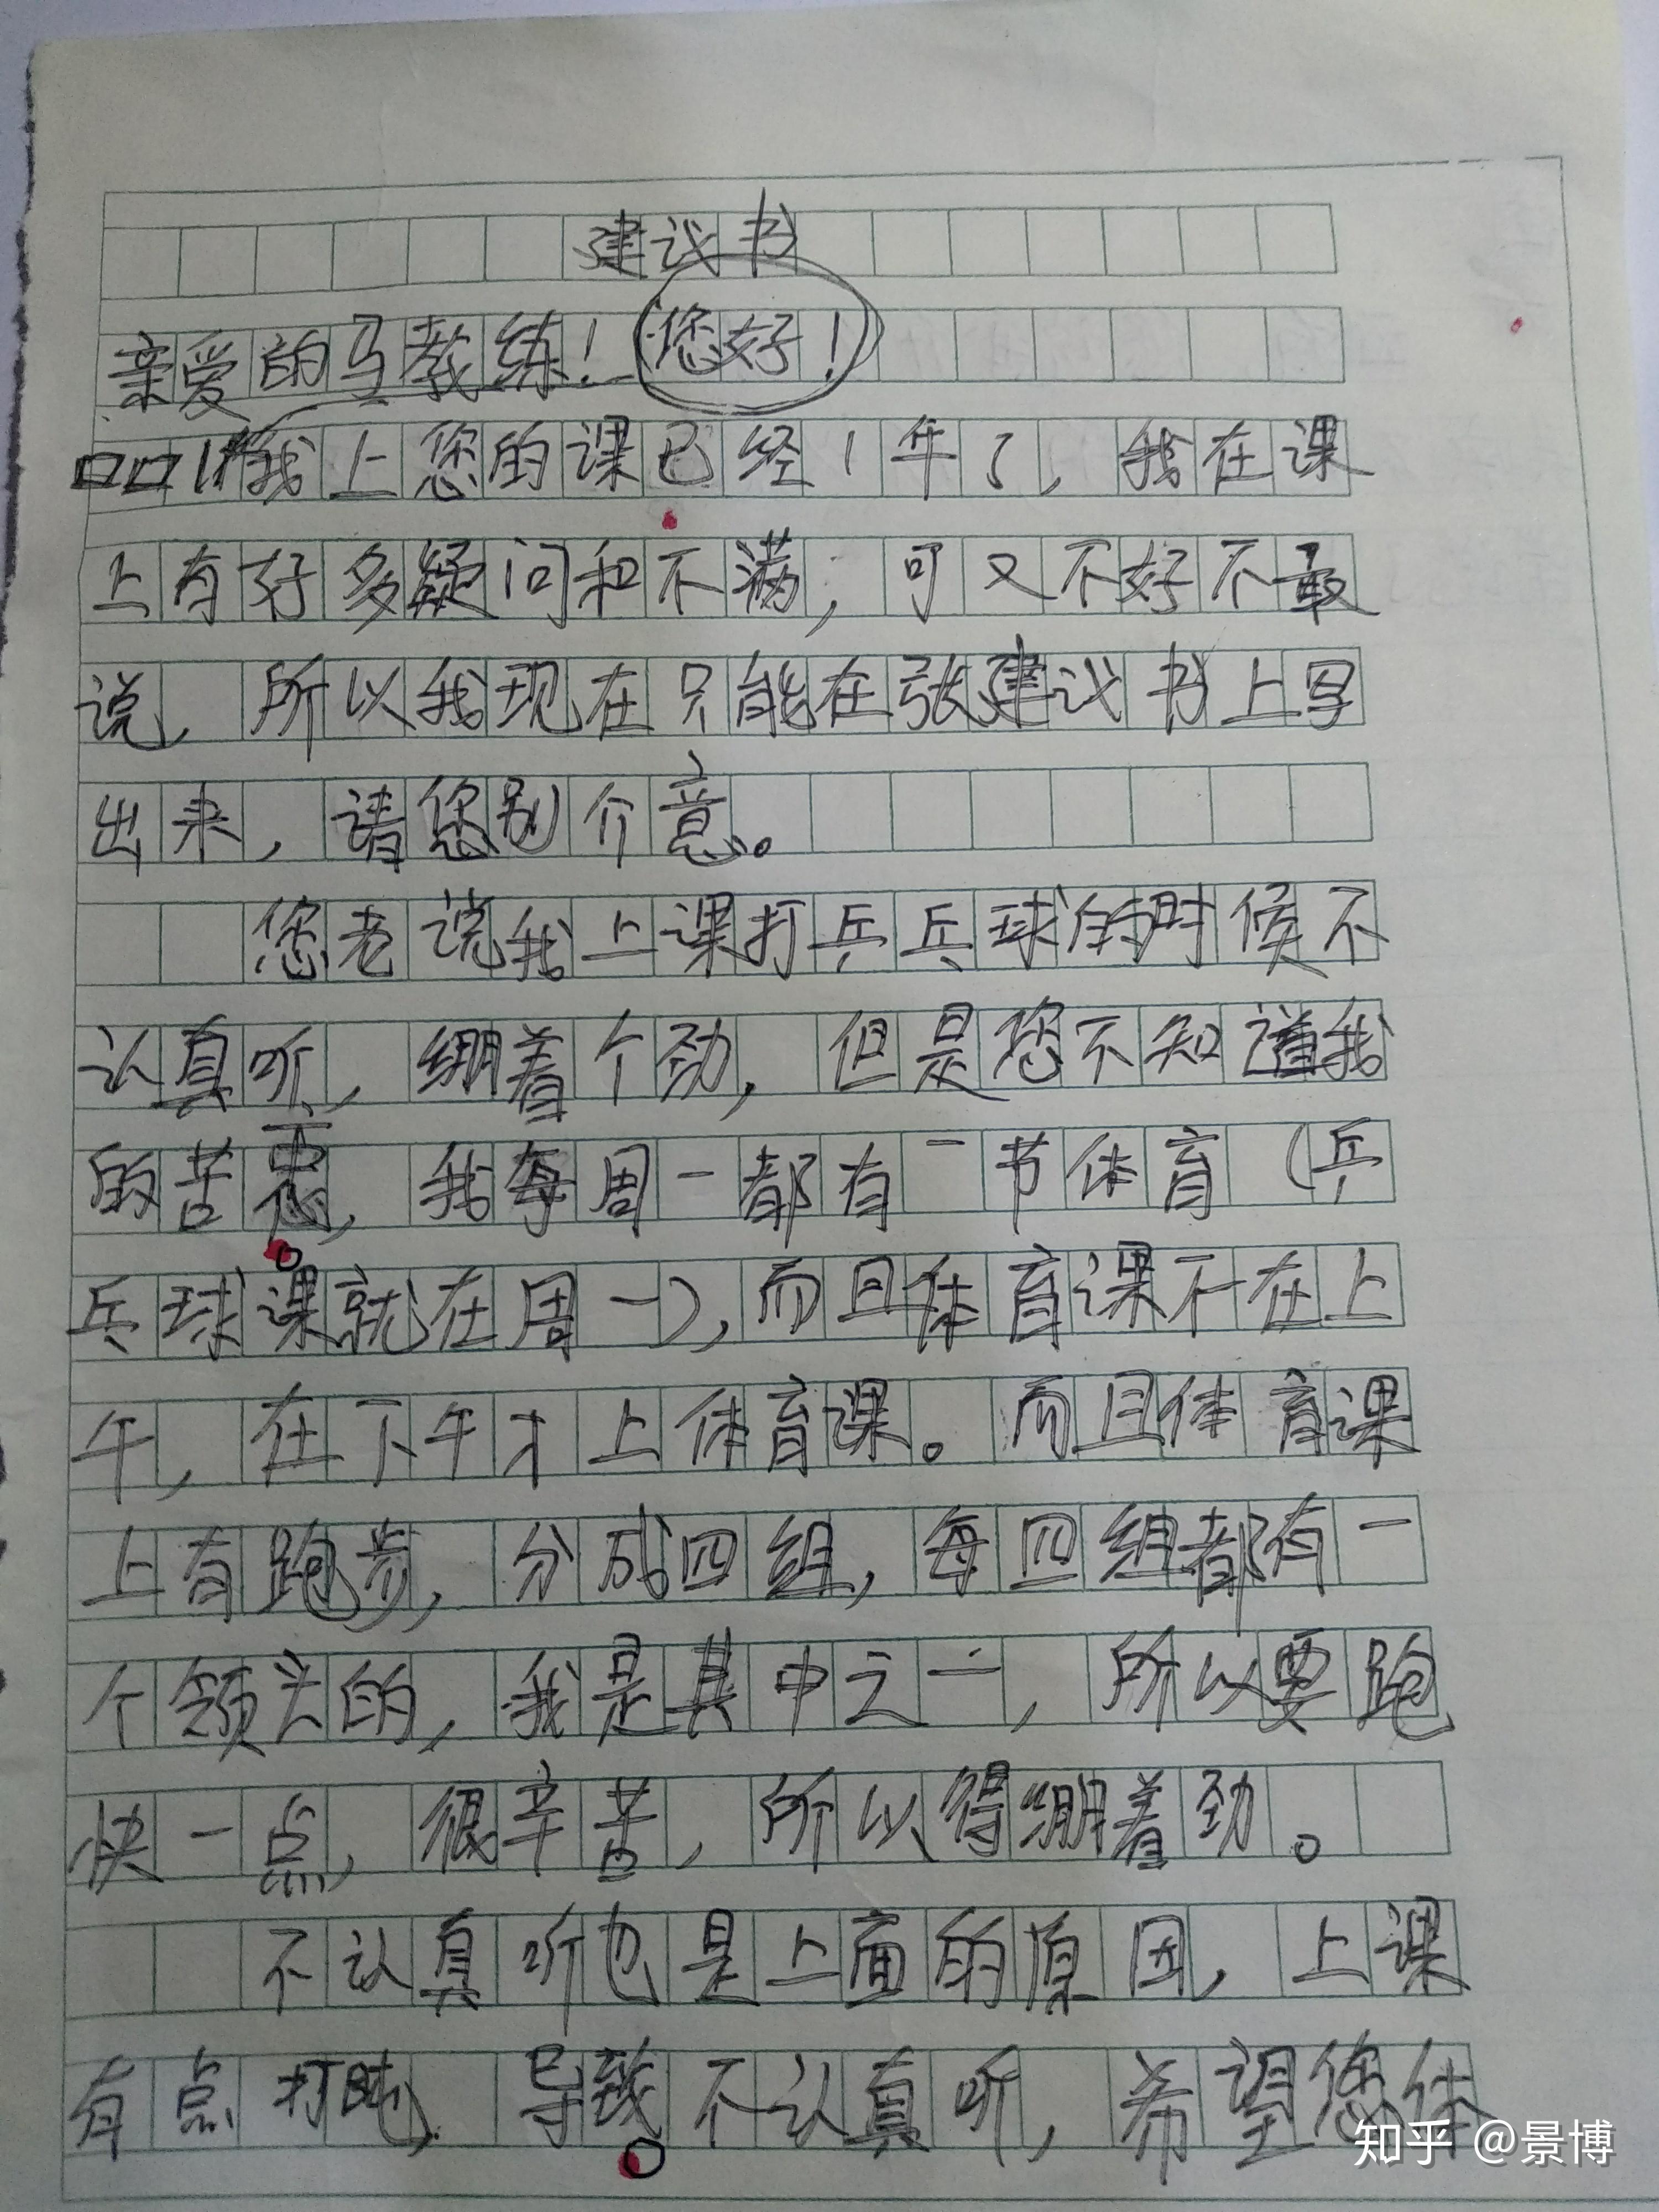 建议书
亲爱的马教练！您好！
我上您的课已经1年了，我在课
上有好多疑问和不满，可又不好不敢
说，所以我现在只能在张建议书上写
出来，请您别介意。
您老说我上课打乒乓球的时候不
认真听，绷着个劲，但是您不知道我
的苦，我每周一都有一节体育（乒
乓球课就在周一），而且体育课不在上
午，在下午才上体育课。而且体育课
上有跑步，分成四组，每四组都有一
个领头的，我是其中之一，所以要跑
快一点，很辛苦，所以得绷着劲。
不认真听也是上面的原因，上课
有点打盹，导致不认真听，希望您体
知乎 @景博